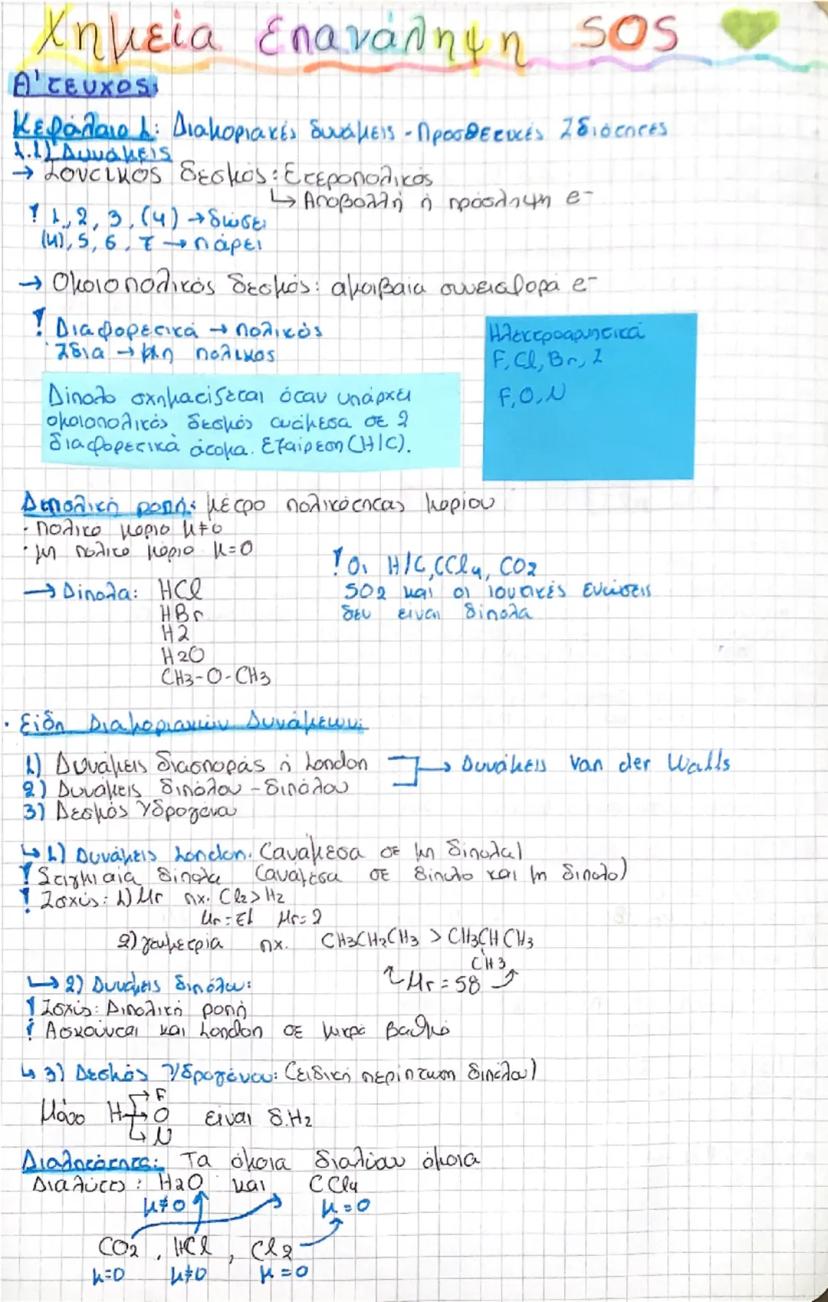 Χημεία Επανάληψη SOS
Α' τεύχος:
Κεφάλαιο 1: Διαμοριακές δυνάμεις - Προσθετικές Ιδιότητες
1.1) Δυνάμεις
→ Ιοντικός δεσμός: Ετεροπολικός
↳ Αποβολλή ή πρόσληψη e⁻
! 1, 2, 3, (4) → δώσει
(4), 5, 6, 7 → πάρει
→ Ομοιοπολικός δεσμός: αμοιβαία συνεισφορά e⁻
! Διαφορετικά → πολικός
Ίδια → μη πολικος
Ηλεκτροαρνητικά
F, Cl, Br, I
F, O, N
Δίπολο σχηματίζεται όταν υπάρχει
ομοιοπολικός δεσμός ανάμεσα σε 2
διαφορετικά άτομα. Εξαίρεση (H/C).
Διπολική ροπή: μέτρο πολικότητας μορίου
· πολικο μοριο μ≠0
· μη πολικο μόριο μ=0
! Οι H/C, CCl4, CO2
SO2 και οι ιοντικές ενώσεις
δεν ειναι δίπολα
→ Δίπολα: HCl
HBr
H2
H2O
CH3-O-CH3
· Είδη Διαμοριακών Δυνάμεων:
1) Δυνάμεις διασποράς ή London
→ Δυνάμεις Van der Walls
2) Δυνάμεις διπόλου - διπόλου
3) Δεσμός Υδρογόνου
↳ 1) Δυνάμεις London: (ανάμεσα σε μη δίπολα)
! Στιγμιαία δίπολα (ανάμεσα σε δίπολο και μη δίπολο)
! Ισχύς: 1) Mr πχ. Cl2 > H2
Mr = 71 Mr = 2
2) γεωμετρία πχ. CH3CH2CH3 > CH3CHCH3
CH3
Mr = 58
↳ 2) Δυνάμεις διπόλου:
! Ισχύς: Διπολική ροπή
! Ασκούνται και London σε μικρό βαθμό
↳ 3) Δεσμός Υδρογόνου: (ειδική περίπτωση διπόλου)
F
Μόνο H → O ειναι δ.H2
N
Διαλυτότητα: Τα όμοια διαλύουν όμοια
Διαλύτες: H2O και CCl4
μ≠0 μ=0
CO2, HCl, Cl2
μ=0 μ≠0 μ=0